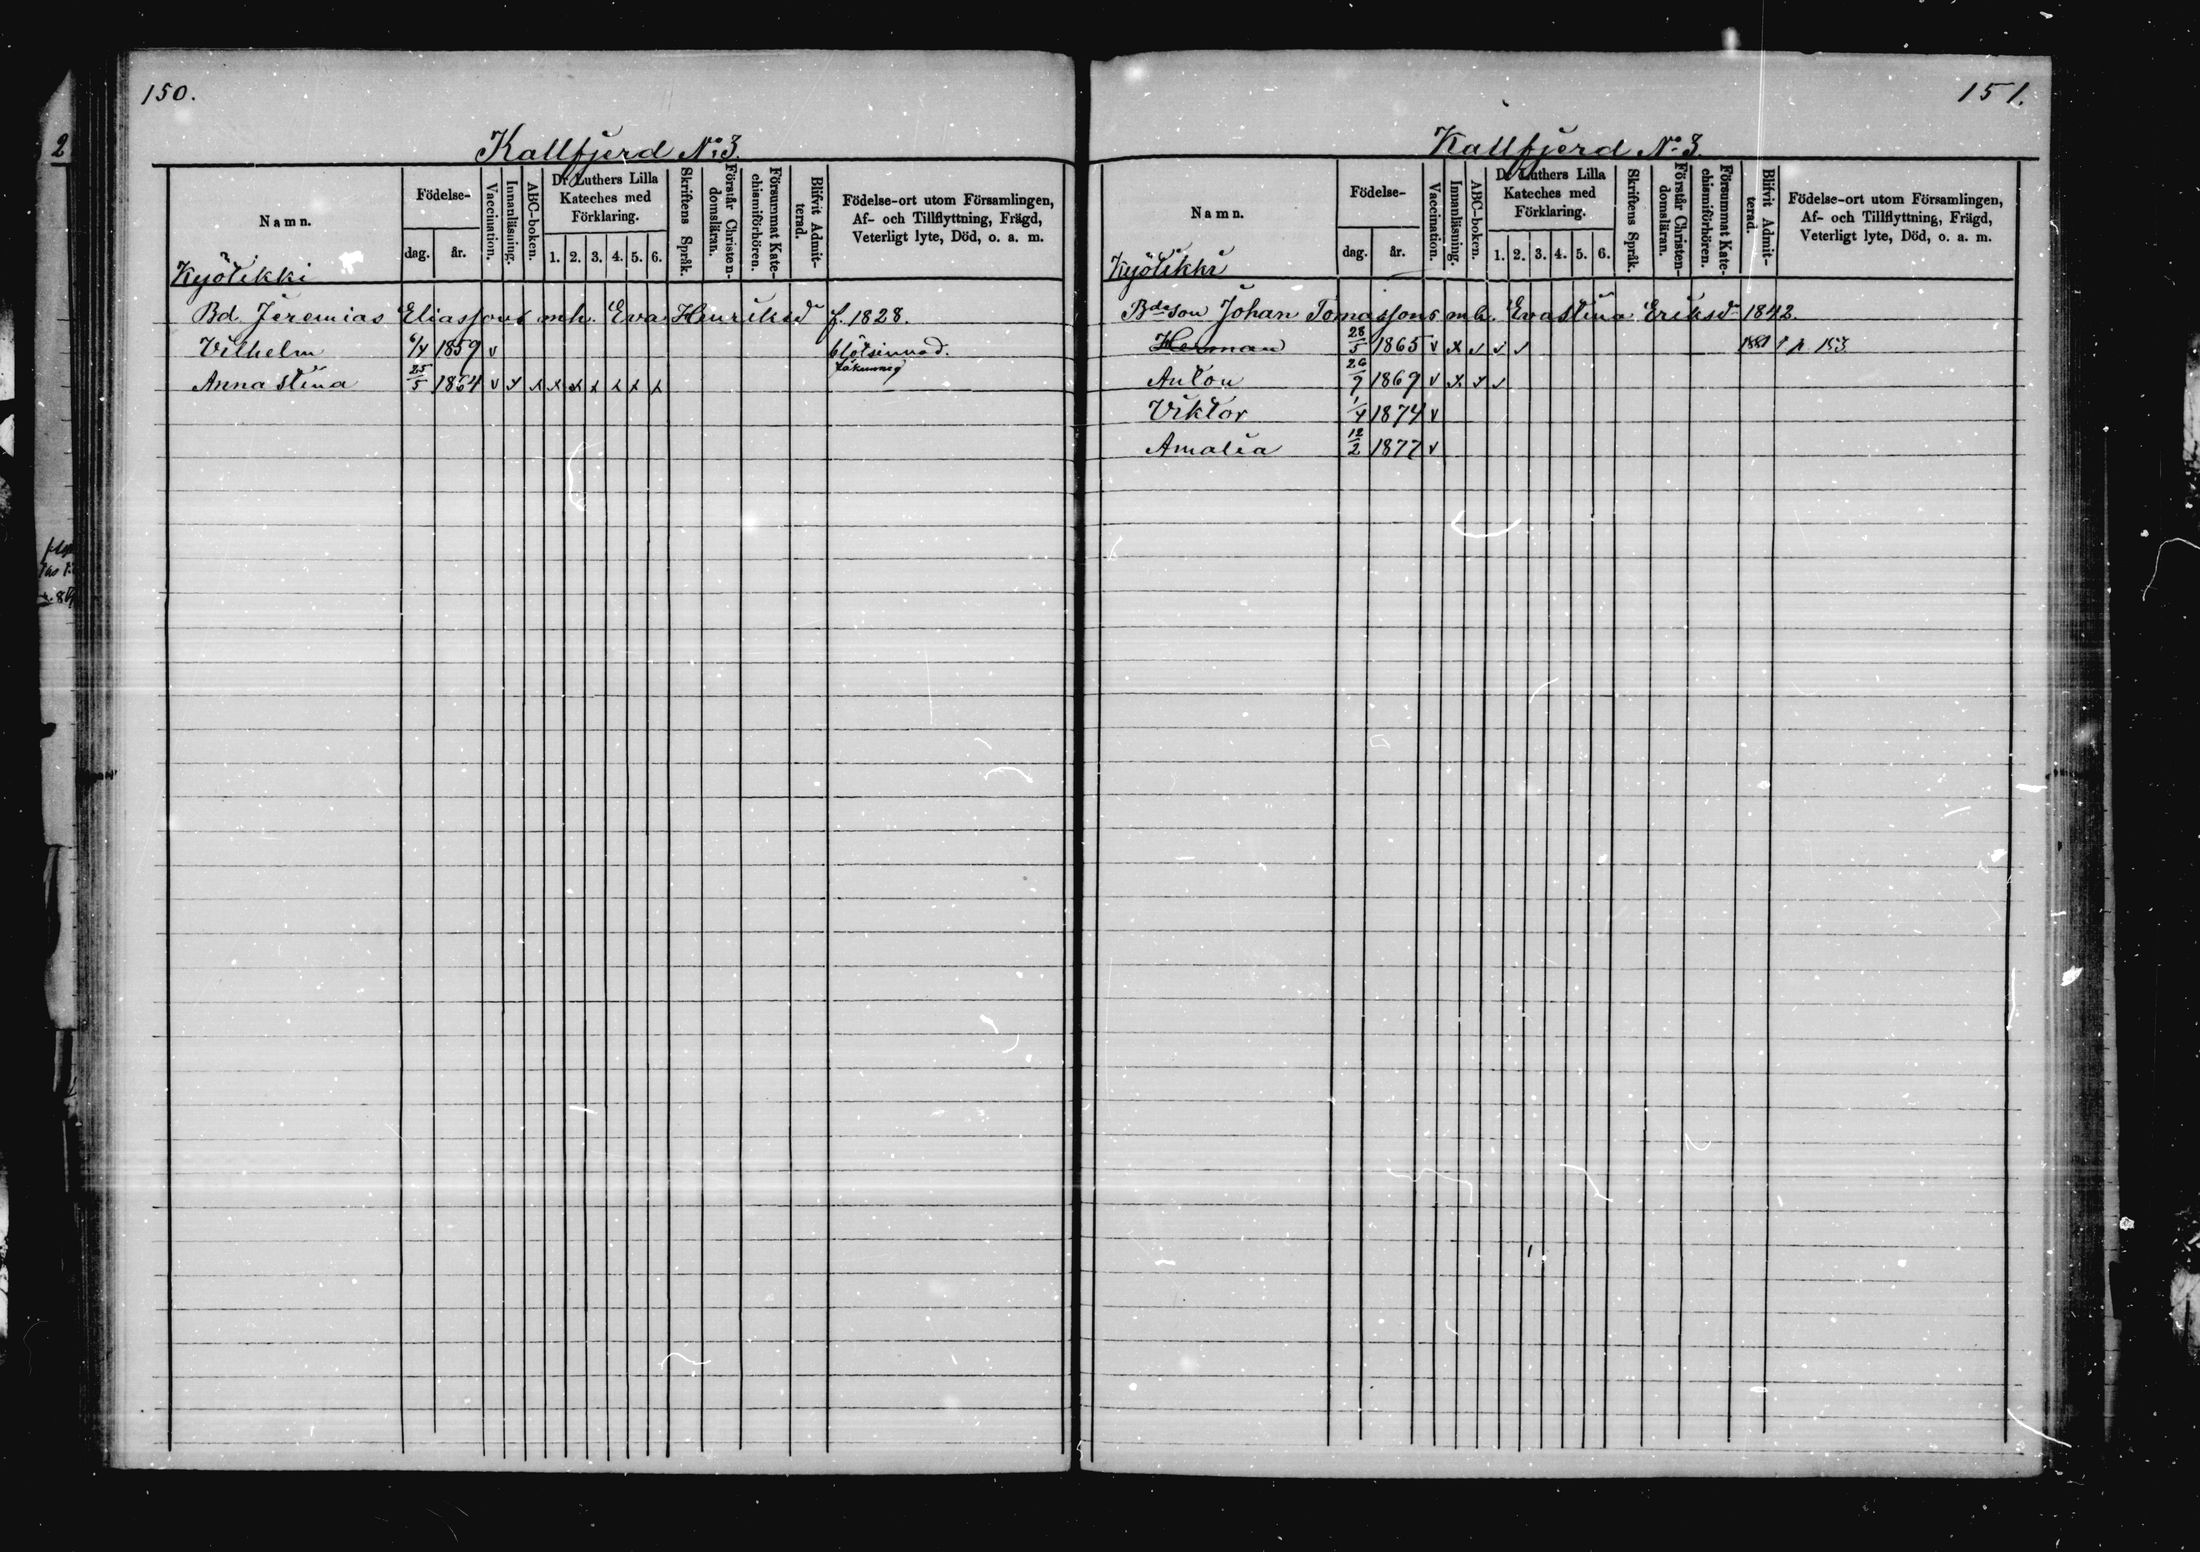 150.
Kallfjerd No 3.
Namn.
Födelse-
dag.
år.
Vaccination.
Innanläsning.
ABC-boken.
Dr Luthers Lilla
Kateches med
Förklaring.
1. 2. 3. 4. 5. 6.
Skriftens Språk.
Förstår Christen-
domsläran.
Försummat Kate-
chismiförhören.
Blifvit Admit-
terad.
Födelse-ort utom Församlingen,
Af- och Tillflyttning, Frägd,
Veterligt lyte, Död, o. a. m.
Kyötikki
Bd. Jeremias Eliassons mh. Eva Henriksd f. 1828.
Vilhelm 6/4 1859 v blötsinnad.
Anna Stina 25/5 1864 v x x x x x x x x
151.
Kallfjerd No 3.
Namn.
Födelse-
dag.
år.
Vaccination.
Innanläsning.
ABC-boken.
Dr Luthers Lilla
Kateches med
Förklaring.
1. 2. 3. 4. 5. 6.
Skriftens Språk.
Förstår Christen-
domsläran.
Försummat Kate-
chismiförhören.
Blifvit Admit-
terad.
Födelse-ort utom Församlingen,
Af- och Tillflyttning, Frägd,
Veterligt lyte, Död, o. a. m.
Kyötikki
Bde son Johan Tomassons mh. Eva Stina Eriksd 1842.
Herman 28/5 1865 v x v v v 1881 p 153
Anton 26/9 1869 v x x v
Viktor 1/4 1874 v
Amalia 12/2 1877 v